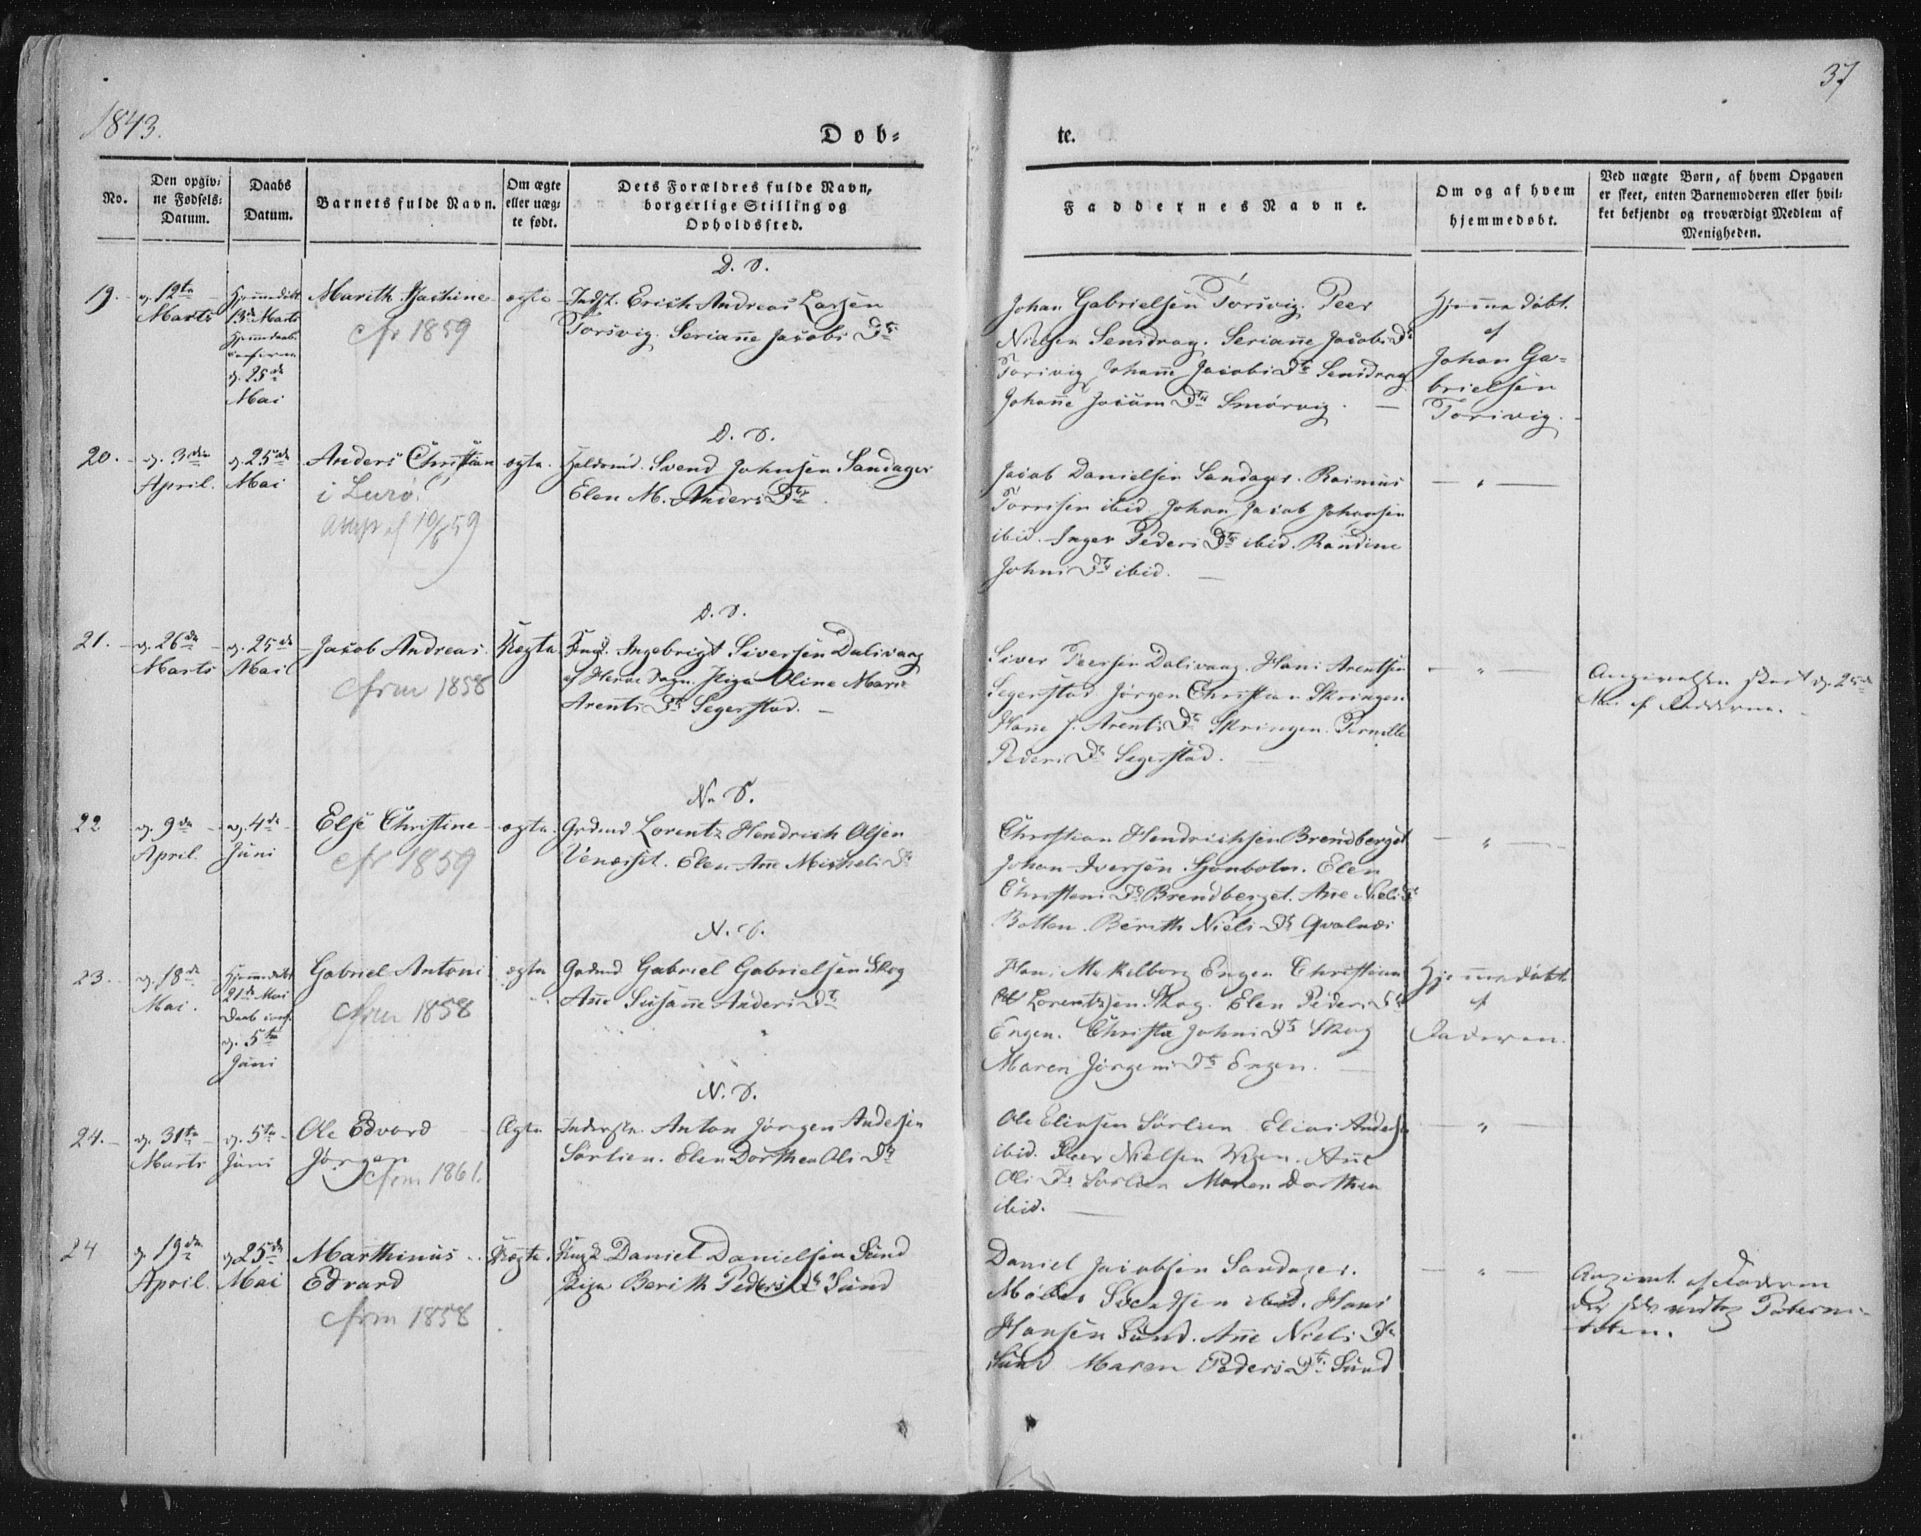 1843.
37
Døb-
te.
No.
Den opgiv-
ne Fødsels-
Datum.
Daabs
Datum.
Barnets fulde Navn.
Om ægte
eller uæg-
te født.
Dets Forældres fulde Navn,
borgerlige Stilling og
Opholdssted.
Faddernes Navne.
Om og af hvem
hjemmedøbt.
Ved uægte Børn, af hvem Opgaven
er skeet, enten Barnemoderen eller hvil-
ket bekjendt og troværdigt Medlem af
Menigheden.
D. S.
19.
d. 12te
Marts
Hjemmedøbt
13de Marts
d. 25de
Mai
Marith
cfr 1859
ægte
Indst. Erich Andreas Larsen
Torsvig. Seriane Jacobs Dr
Johan Gabrielsen Torsvig. Peer
Nielsen Sensdrag. Seriane Jacobs Dr
Torsvig Johane Jacobs Dr Sensdrag
Johane Jocum Dr Smørvig.
Hjemmedøbt
af
Johan Ga-
brielsen
Torsvig.
D. S.
20.
d. 3die
April.
d. 25de
Mai
Anders Christian
i Lurø.
10/6 59
ægte.
Svend Johnsen Sandager
Elen M. Anders Dr
Jacob Danielsen Sandager. Rasmus
Torrisen ibid. Johan Jacob Johansen
ibid. Inger Peders Dr ibid. Randine
Johns Dr ibid.
D. S.
21.
d. 26de
Marts
d. 25de
Mai
Jacob Andreas.
cfrm 1858
Uægte
Ungk. Ingebrigt Siversen Dalsvaag
af Herøe Sogn. Piga Oline Marie
Arents Dr Segerstad.
Siver Peersen Dalsvaag. Hans Arentsen
Segerstad Jørgen Christian Skringen
Hane J. Arents Dr Skringen. Pernille
Peders Dr Segerstad.
Angivelsen skeet d. 25de
Mai af Faderen.
N. S.
22
d. 9de
April.
d. 4de
Juni
Else Christine
cfr 1859
ægte.
Grdmd Lorentz Hendrich Olsen
Venæset. Elen Ane Michels Dr
Christian Hendrichsen Brendberget
Johan Iversen Sjonbotn. Elen
Christens Dr Brendberget. Ane Niels Dr
Botten. Berith Niels Dr Qvalnæs
N. S.
23.
d. 18de
Mai.
Hjemmedøbt
21de Mai
Daab conf.
d. 5te
Juni
Gabriel Antoni
cfrm 1858
ægte
Grdmd Gabriel Gabrielsen Skog
Ane Susane Anders Dr
Hans Mekelborg Engen Christian
Lorentzsen Skog. Elen Peders Dr
Engen. Christa Johns Dr Skog
Maren Jørgens Dr Engen.
Hjemmedøbt
af
Faderen.
N. S.
24.
d. 31te
Marts
d. 5te
Juni
Ole Edvard
Jørgen
cfrm 1861.
Ægte
Inderste. Anton Jørgen Andersen
Sørlien. Elen Dorthea Ols Dr
Ole Eliasen Sørlien Elias Andersen
ibid. Peer Nielsen Ane
Ols Dr Sørlien Maren Dorthea
ibid.
24
d. 19de
April.
d. 25de
Mai
Marthinus
Edvard
cfrm 1858
Uægte.
Ungk Daniel Danielsen Sund
Piga Berith Peders Dr Sund
Daniel Jacobsen Sandager.
Svendsen ibid. Hans
Hansen Sund. Ane Niels Dr
Sund Maren Peders Dr Sund
Angivet af Faderen